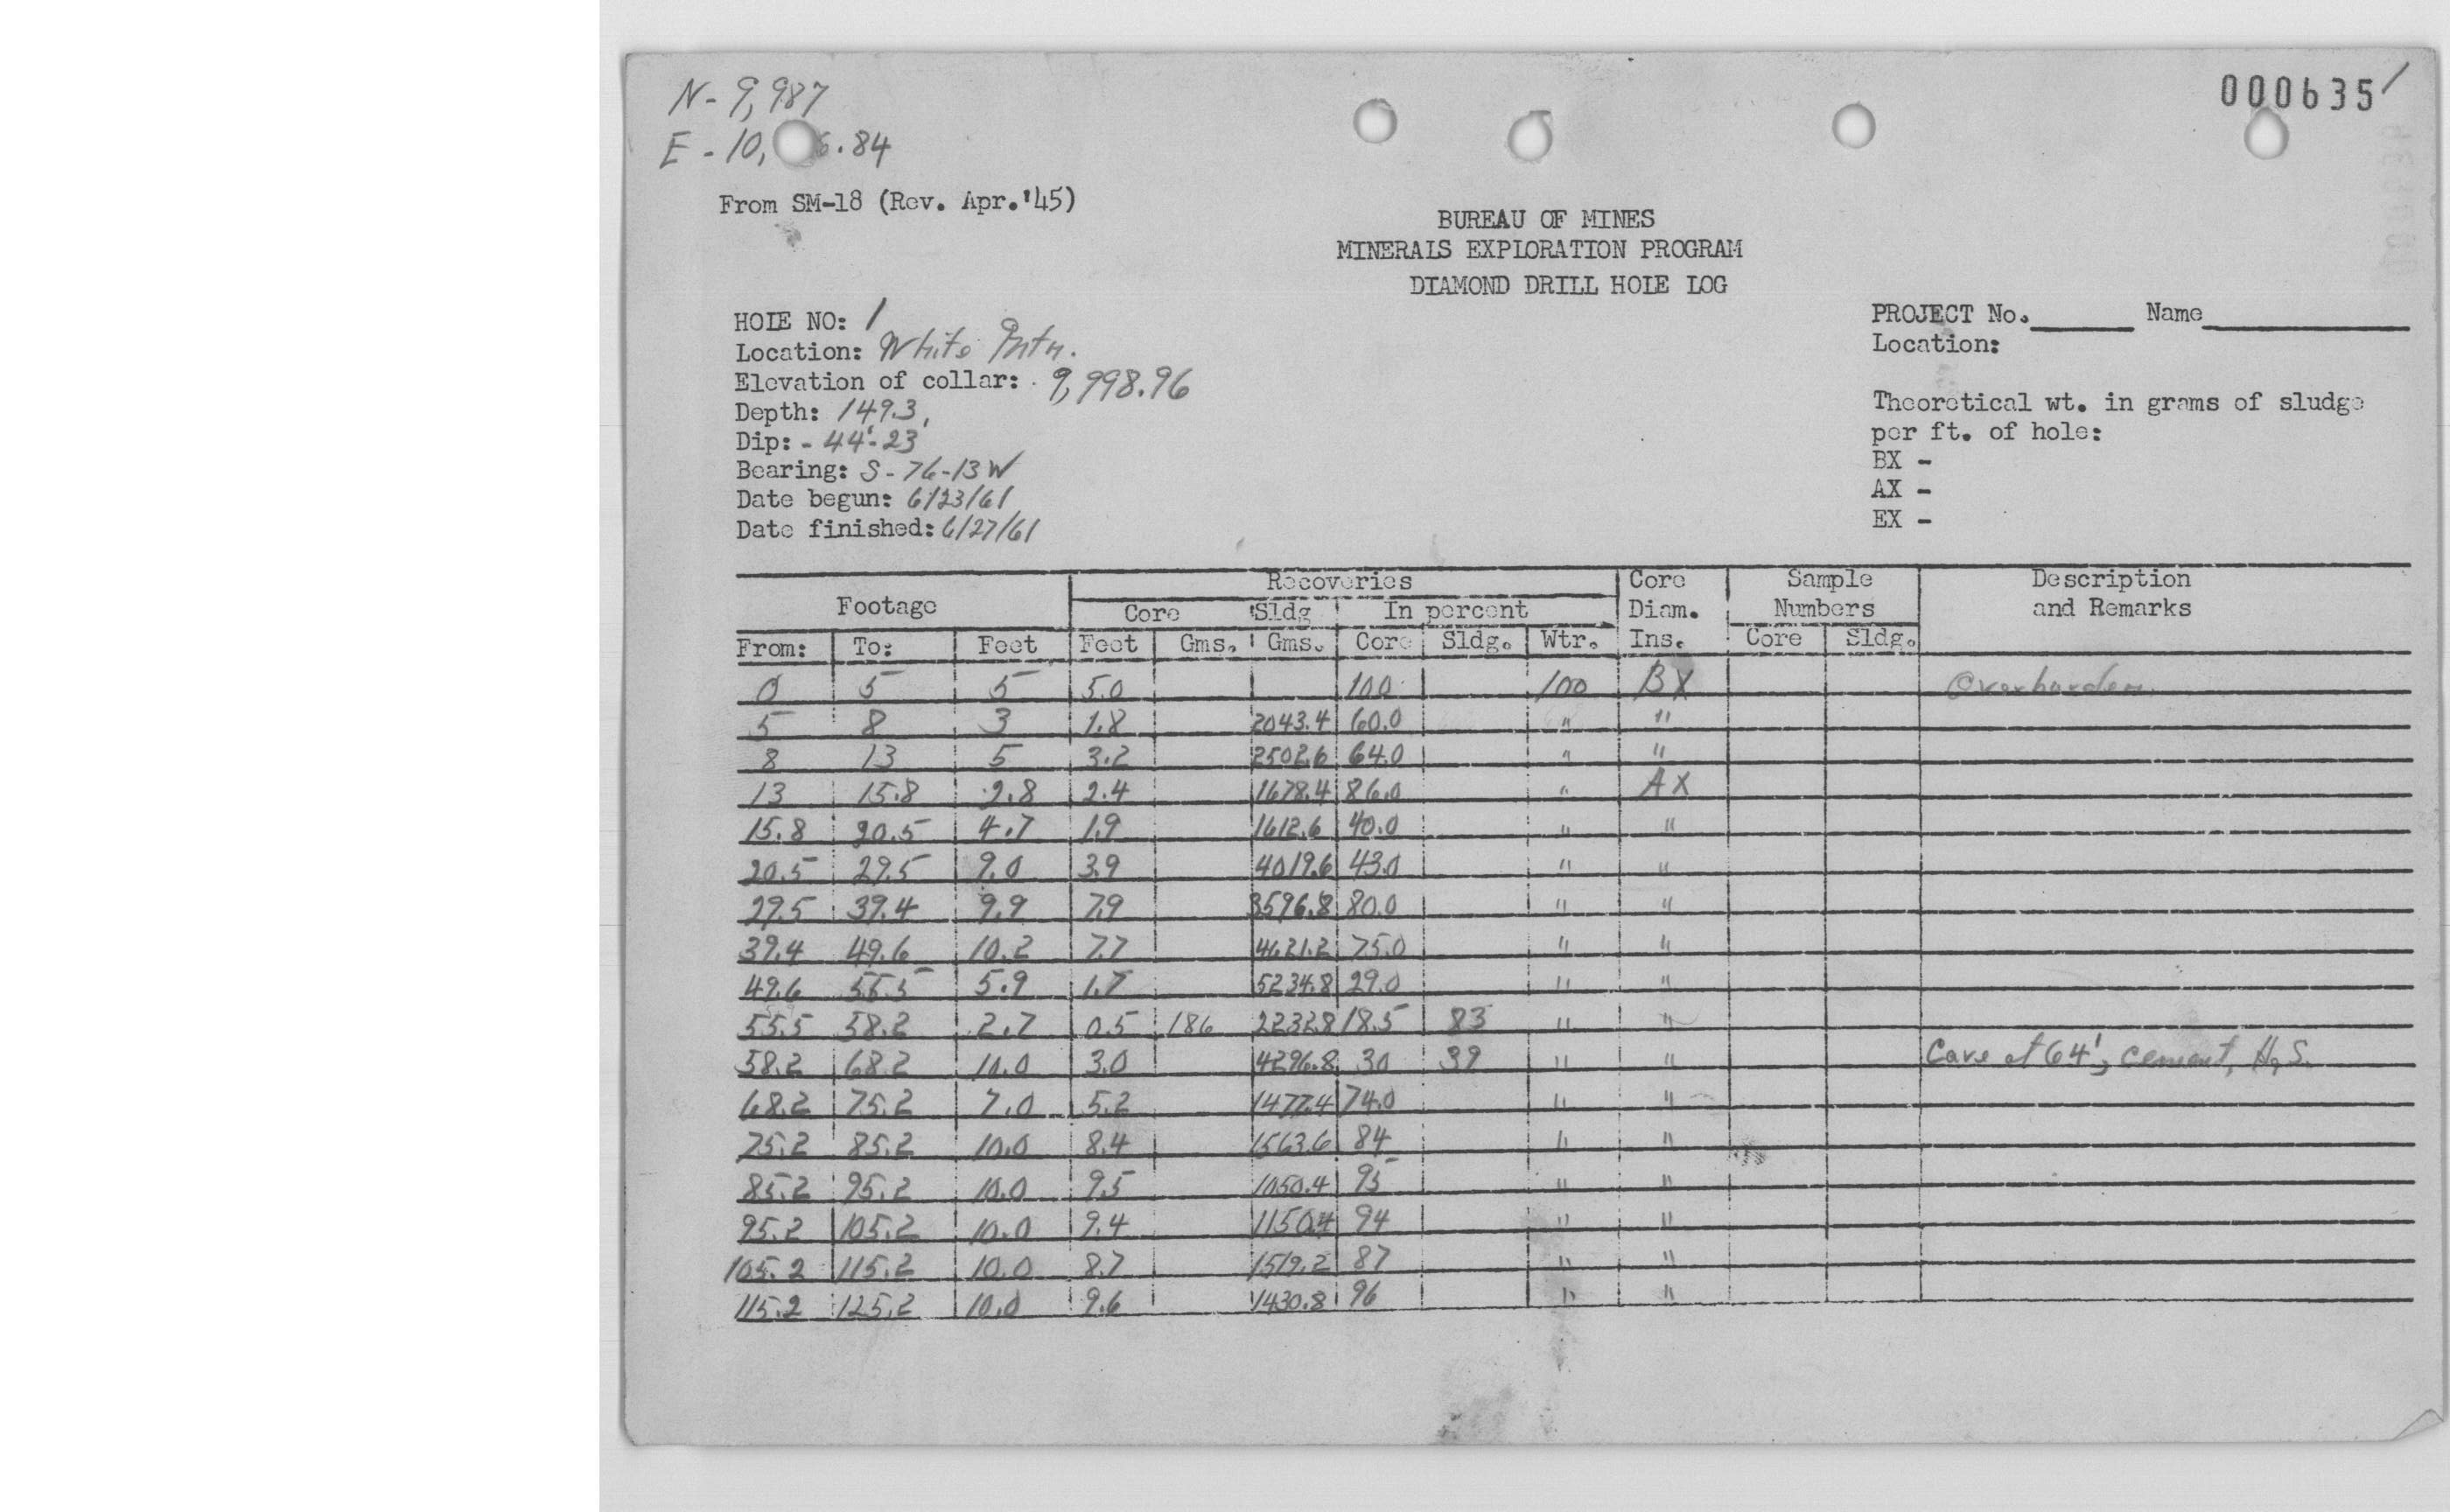 N- 9,987
000635
E-10, 6.84
From SM-18 (Rev. Apr.'45)
BUREAU OF MINES
MINERALS EXPLORATION PROGRAM
DIAMOND DRILL HOLE LOG
HOLE NO: 1
PROJECT No. Name
Location: White Mtn.
Location:
Elevation of collar: 9,998.96
Depth: 149.3
Theoretical wt. in grams of sludge
Dip: - 44'-23'
per ft. of hole:
Bearing: S-76-13W
BX -
Date begun: 6/23/61
AX -
Date finished: 6/27/61
EX -
Footage Recoveries Core Sample Description
Core Sldg In percent Diam. Numbers and Remarks
From: To: Feet Feet Gms. Gms. Core Sldg. Wtr. Ins. Core Sldg.
0 5 5 5.0 100 100 BX Overburden
5 8 3 1.8 2043.4 60.0 " "
8 13 5 3.2 2502.6 64.0 " "
13 15.8 2.8 2.4 1678.4 86.0 " AX
15.8 20.5 4.7 1.9 1612.6 40.0 " "
20.5 29.5 9.0 3.9 4019.6 43.0 " "
29.5 39.4 9.9 7.9 3596.8 80.0 " "
39.4 49.6 10.2 7.7 4621.2 75.0 " "
49.6 55.5 5.9 1.7 5234.8 29.0 " "
55.5 58.2 2.7 0.5 186 2232.8 18.5 83 " "
58.2 68.2 10.0 3.0 4296.8 30 39 " " Cave at 64', cement, H2S.
68.2 75.2 7.0 5.2 1477.4 74.0 " "
75.2 85.2 10.0 8.4 1563.6 84 " "
85.2 95.2 10.0 9.5 1050.4 95 " "
95.2 105.2 10.0 9.4 1150.4 94 " "
105.2 115.2 10.0 8.7 1519.2 87 " "
115.2 125.2 10.0 9.6 1430.8 96 " "